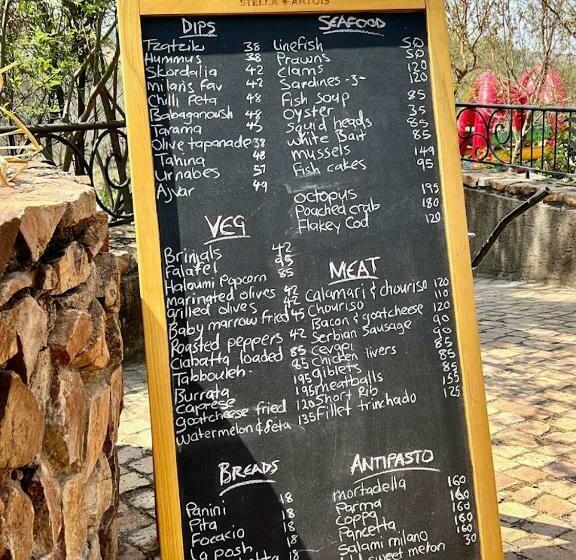 STELLA ARTOIS
DIPS
Tzatziki 38
Hummus 38
Skordalia 42
milans Fav 42
Chilli Feta 48
Babaganoush 48
Tarama 45
Olive tapanade 38
Tahina 48
Urnabes 57
Ajvar 49
SEAFOOD
Linefish SQ
Prawns SQ
Clams 120
Sardines -3- 120
Fish soup 85
Oyster 35
Squid heads 85
White Bait 85
mussels 149
Fish cakes 95
Octopus 195
Poached crab 180
Flakey Cod 120
VEG
Brinjals 42
Falafel 95
Haloumi Popcorn 85
marinated olives 42
Grilled olives 42
Baby marrow fried 45
Roasted peppers 42
Ciabatta loaded 85
Tabbouleh 85
Burrata 195
Caprese 195
goatcheese fried 120
watermelon & feta 135
MEAT
Calamari & chouriso 120
Chouriso 110
Bacon & goatcheese 120
Serbian Sausage 90
Cevapi 90
Chicken livers 85
giblets 85
meatballs 85
Short Rib 155
Fillet trinchado 125
BREADS
Panini 18
Pita 18
Focacio 18
La posh 18
ANTIPASTO
mortadella 160
Parma 160
Coppa 160
Pancetta 160
Salami milano 160
sweet melon 30